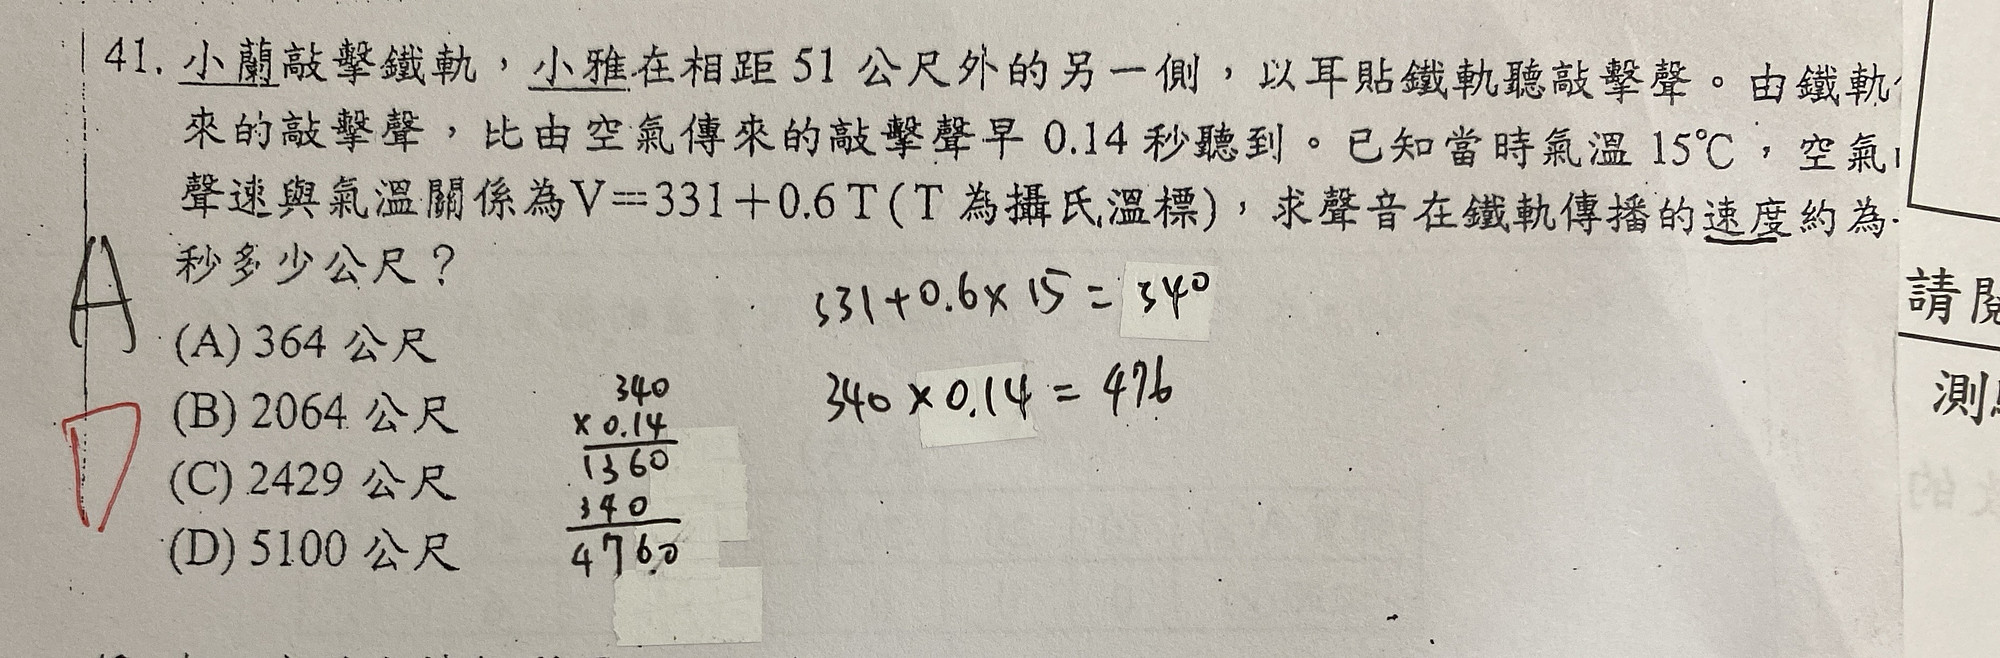 41. 小蘭敲擊鐵軌，小雅在相距 51 公尺外的另一側，以耳貼鐵軌聽敲擊聲。由鐵軌
來的敲擊聲，比由空氣傳來的敲擊聲早 0.14 秒聽到。已知當時氣溫 15℃，空氣
聲速與氣溫關係為V=331+0.6T(T 為攝氏溫標)，求聲音在鐵軌傳播的速度約為
秒多少公尺？
A
(A) 364 公尺
(B) 2064 公尺
(C) 2429 公尺
(D) 5100 公尺
D
331+0.6×15=340
340×0.14=476
340
×0.14
1360
340
476.0
請閱
測
的